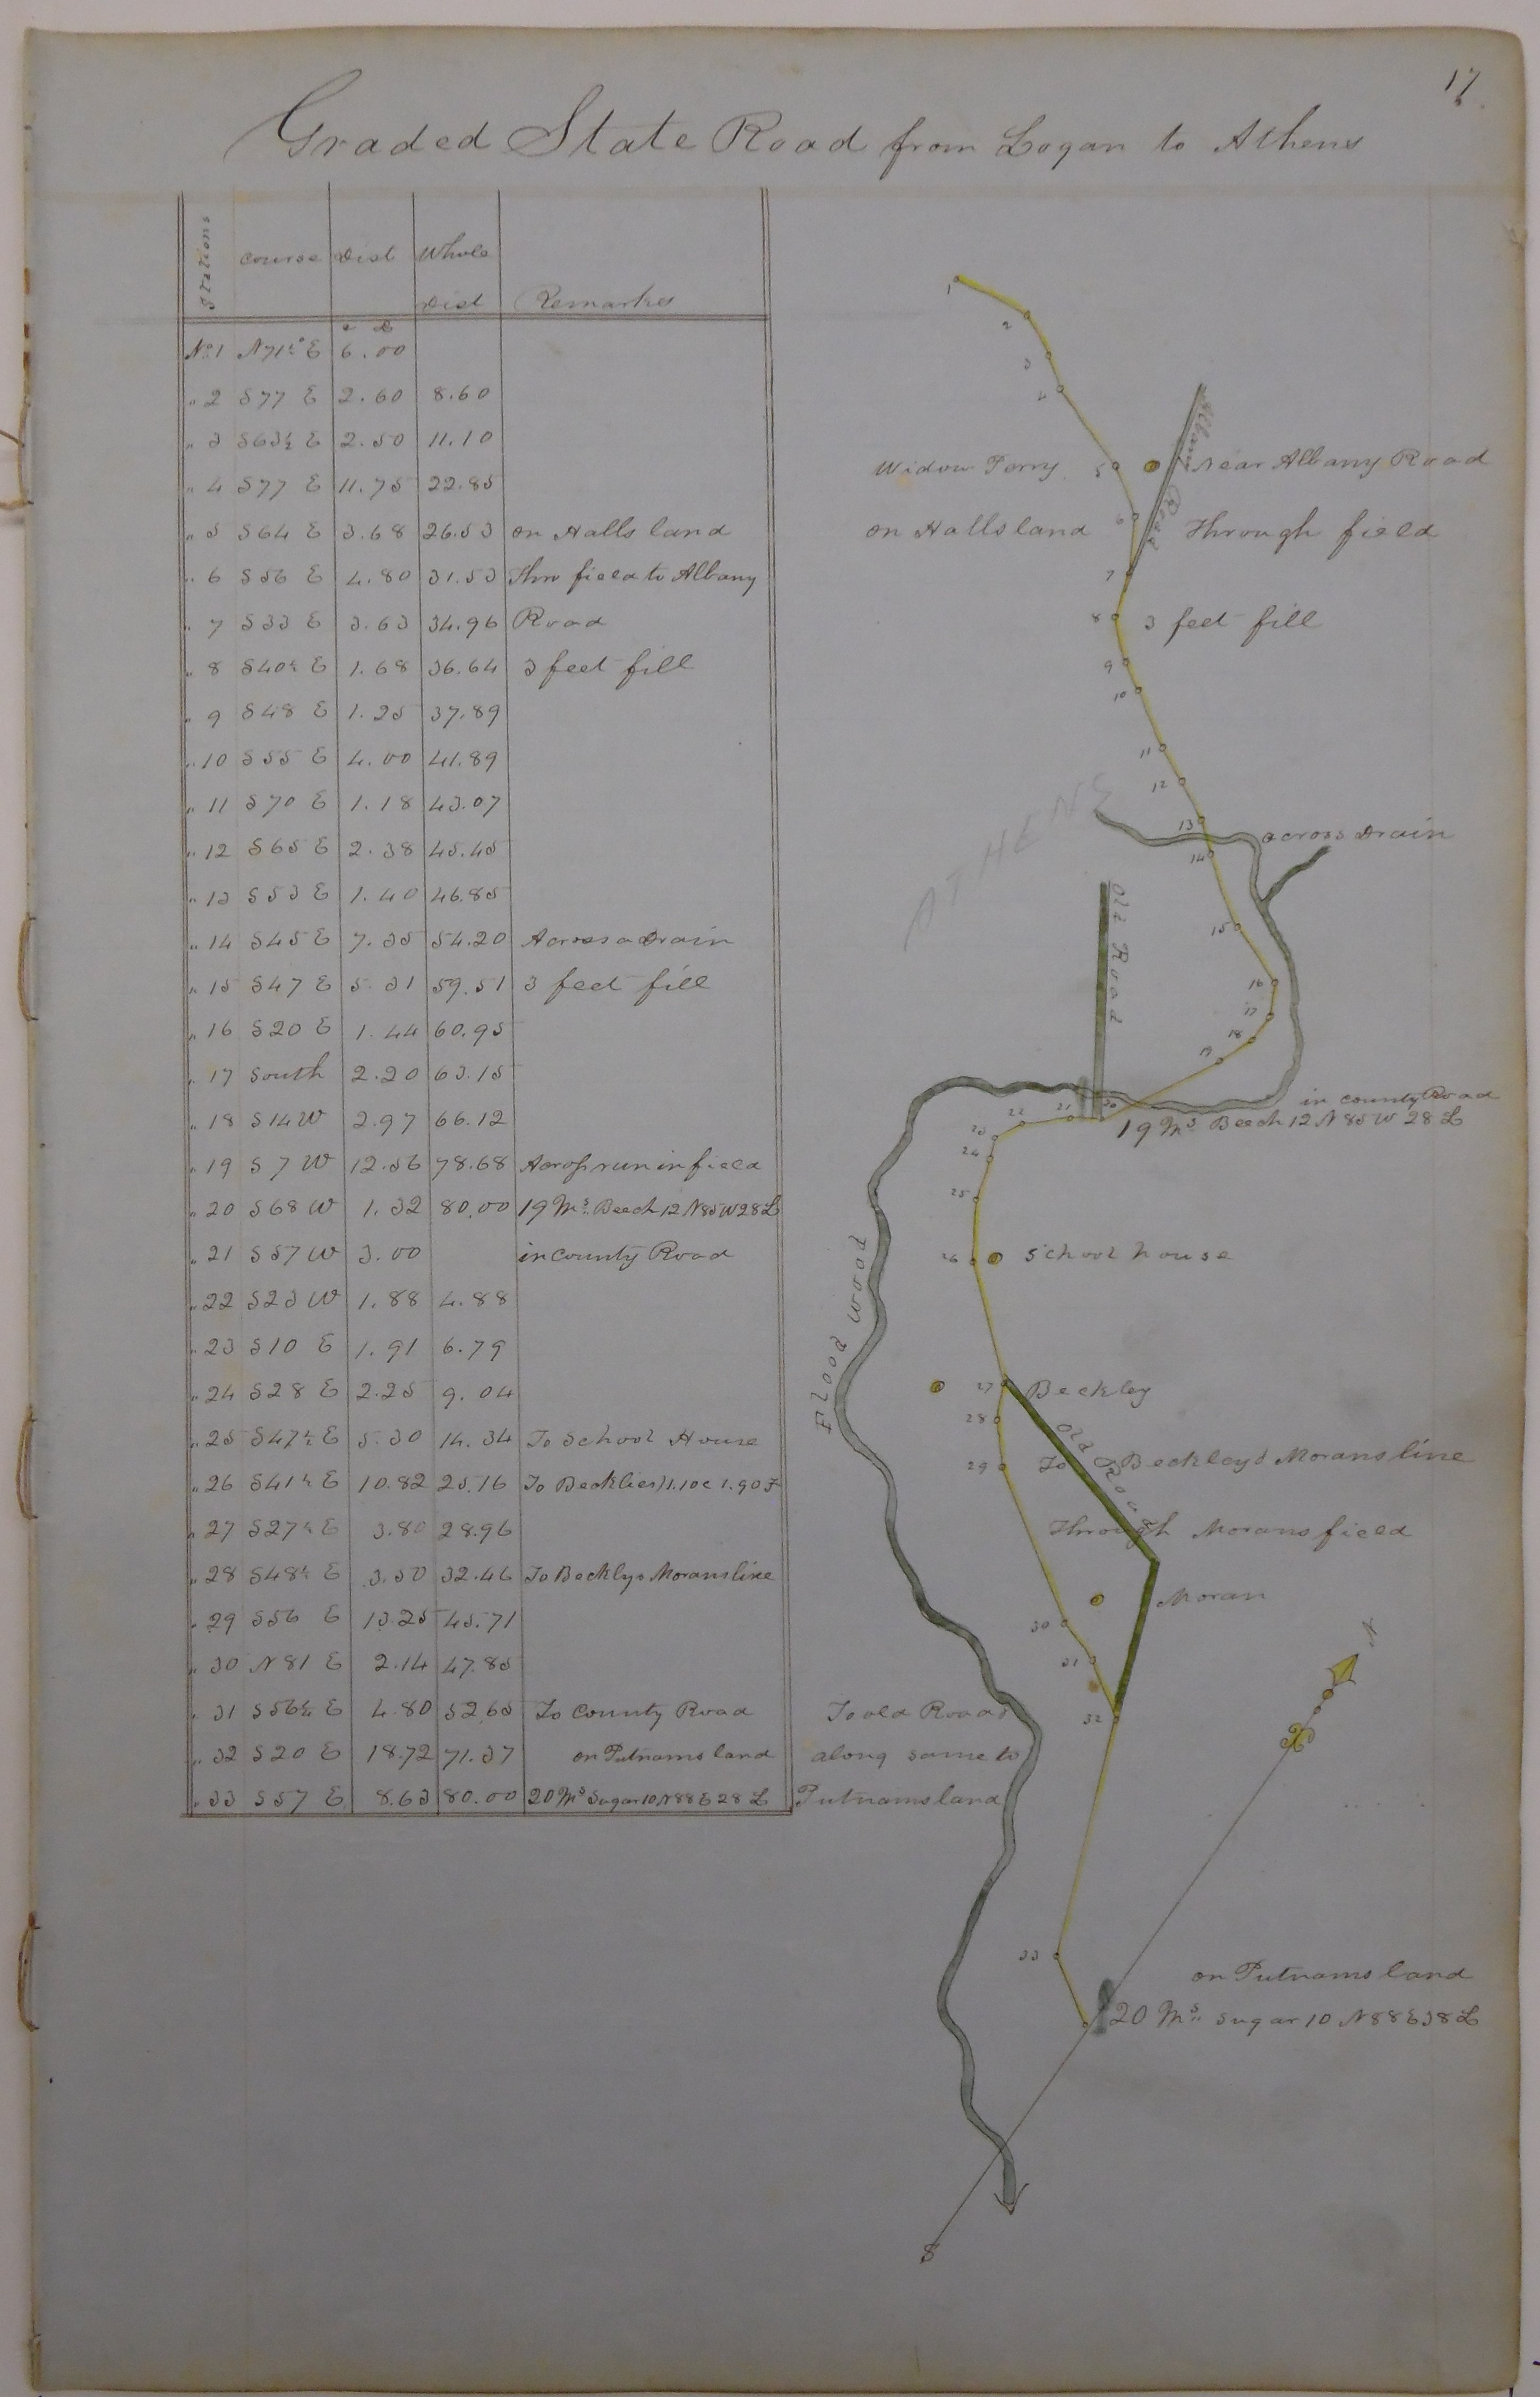 17
Graded State Road from Logan to Athens
Stations course Dist Whole Dist Remarks
c L
No 1 N71½° E 6.00
" 2 S77 E 2.60 8.60
" 3 S63½ E 2.50 11.10
" 4 S77 E 11.75 22.85
" 5 S64 E 3.68 26.53 on Halls land
" 6 S56 E 4.80 31.53 Thro field to Albany
" 7 S33 E 3.63 34.96 Road
" 8 S40½ E 1.68 36.64 3 feet fill
" 9 S48 E 1.25 37.89
" 10 S55 E 4.00 41.89
" 11 S70 E 1.18 43.07
" 12 S65 E 2.38 45.45
" 13 S53 E 1.40 46.85
" 14 S45 E 7.35 54.20 Across a Drain
" 15 S47 E 5.31 59.51 3 feet fill
" 16 S20 E 1.44 60.95
" 17 South 2.20 63.15
" 18 S14 W 2.97 66.12
" 19 S7 W 12.56 78.68 Across run in field
" 20 S68 W 1.32 80.00 19 Ms. Beech 12 N85W 28 L
" 21 S57 W 3.00 in County Road
" 22 S23 W 1.88 4.88
" 23 S10 E 1.91 6.79
" 24 S28 E 2.25 9.04
" 25 S47½ E 5.30 14.34 To School House
" 26 S41½ E 10.82 25.16 To Becklies) 1.10c 1.90 F
" 27 S27½ E 3.80 28.96
" 28 S48½ E 3.50 32.46 To Beckly & Morans line
" 29 S56 E 13.25 45.71
" 30 N81 E 2.14 47.85
" 31 S56½ E 4.80 52.65 To County Road
" 32 S20 E 18.72 71.37 on Putnams land
" 33 S57 E 8.63 80.00 20 Ms Sugar 10 N88 E 28 L
1
2
3
4
Albany Road
Widow Terry 5 near Albany Road
on Halls land 6 Through field
7
8 3 feet fill
9
10
11
12
ATHENS
13
across Drain
14
Old Road
15
16
17
18
19
in county Road
20
21
22
19 Ms. Beech 12 N85 W 28 L
23
24
25
26 School house
Flood wood
27 Beckley
28
Old Road
29 To Beckley & Morans line
Through Morans field
Moran
30
31
To old Road 32
along same to
Putnams land
N
33
on Putnams land
20 Ms. Sugar 10 N88 E 38 L
S